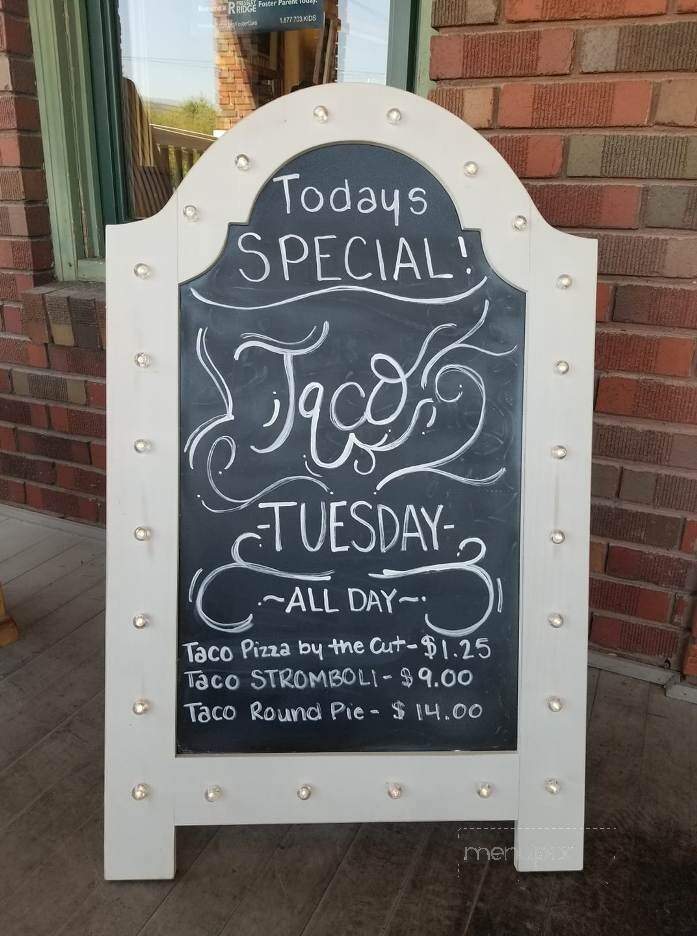 PRESSLEY RIDGE Foster Parent Today.
1.877.703.KIDS
Todays
SPECIAL!
Taco
-TUESDAY-
~ALL DAY~
Taco Pizza by the Cut-$1.25
Taco STROMBOLI-$9.00
Taco Round Pie-$14.00
menupix